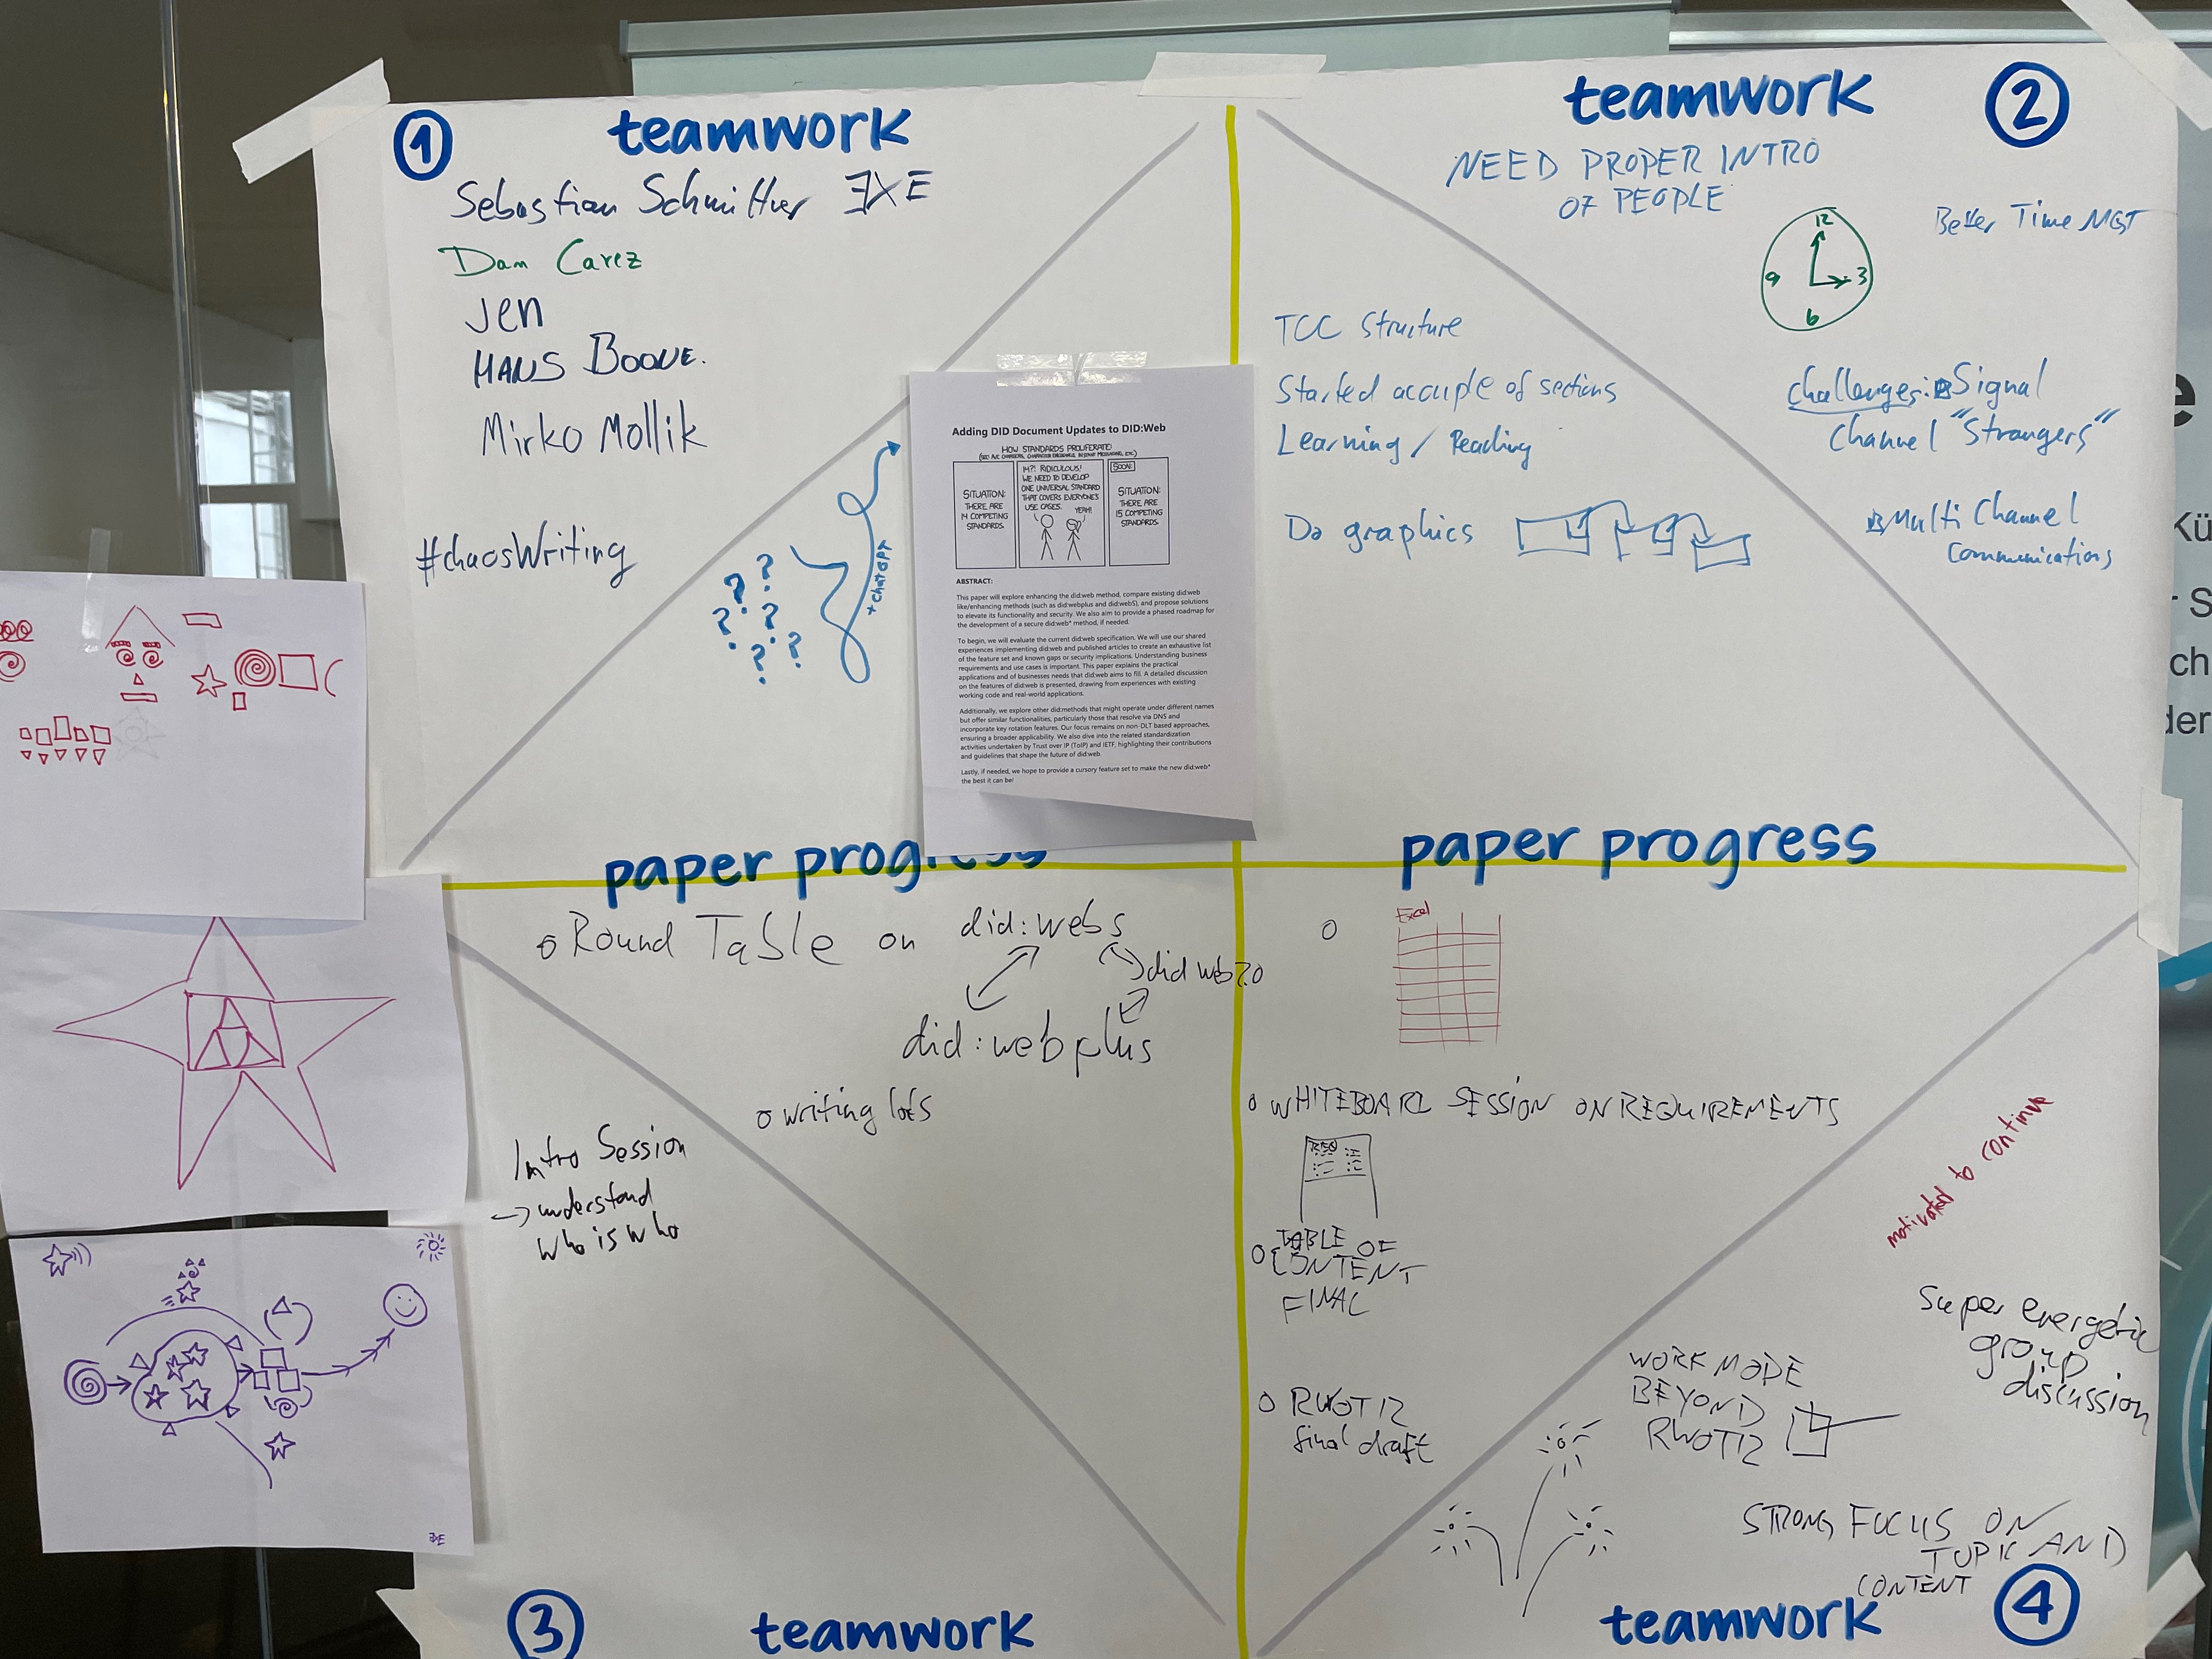 1
teamwork
Sebastian Schmittner EXE
Dam Carez
Jen
HANS BOONE.
Mirko Mollik
#chaosWriting
? ? ? ? ? ? ?
+ chat GPT
Adding DID Document Updates to DID:Web
HOW STANDARDS PROLIFERATE:
(SEE: A/C CHARGERS, CHARACTER ENCODINGS, INSTANT MESSAGING, ETC.)
SITUATION:
THERE ARE
14 COMPETING
STANDARDS.
14?! RIDICULOUS!
WE NEED TO DEVELOP
ONE UNIVERSAL STANDARD
THAT COVERS EVERYONE'S
USE CASES.
YEAH!
SOON:
SITUATION:
THERE ARE
15 COMPETING
STANDARDS.
ABSTRACT:
This paper will explore enhancing the did:web method, compare existing did:web
like/enhancing methods (such as did:webplus and did:webS), and propose solutions
to elevate its functionality and security. We also aim to provide a phased roadmap for
the development of a secure did:web* method, if needed.
To begin, we will evaluate the current did:web specification. We will use our shared
experiences implementing did:web and published articles to create an exhaustive list
of the feature set and known gaps or security implications. Understanding business
requirements and use cases is important. This paper explains the practical
applications and of businesses needs that did:web aims to fill. A detailed discussion
on the features of did:web is presented, drawing from experiences with existing
working code and real-world applications.
Additionally, we explore other did:methods that might operate under different names
but offer similar functionalities, particularly those that resolve via DNS and
incorporate key rotation features. Our focus remains on non-DLT based approaches,
ensuring a broader applicability. We also dive into the related standardization
activities undertaken by Trust over IP (ToIP) and IETF, highlighting their contributions
and guidelines that shape the future of did:web.
Lastly, if needed, we hope to provide a cursory feature set to make the new did:web*
the best it can be!
paper progress
2
teamwork
NEED PROPER INTRO
OF PEOPLE
12
3
6
9
Better Time MGT
TCC Structure
Started a couple of sections
Learning / Reading
Do graphics
Challenges: Signal
Channel "Strangers"
Multi Channel
Communications
paper progress
Round Table on did:webs
did web 2.0
did:webplus
writing lots
Intro Session
→ understand
who is who
3
teamwork
Excel
WHITEBOARD SESSION ON REQUIREMENTS
REQ
TABLE OF
CONTENT
FINAL
RWOT12
final draft
motivated to continue
Super energetic
group
discussion
WORK MODE
BEYOND
RWOT12
STRONG FOCUS ON
TOPIC AND
CONTENT
teamwork
4
e
Kü
r S
ch
der
EXE